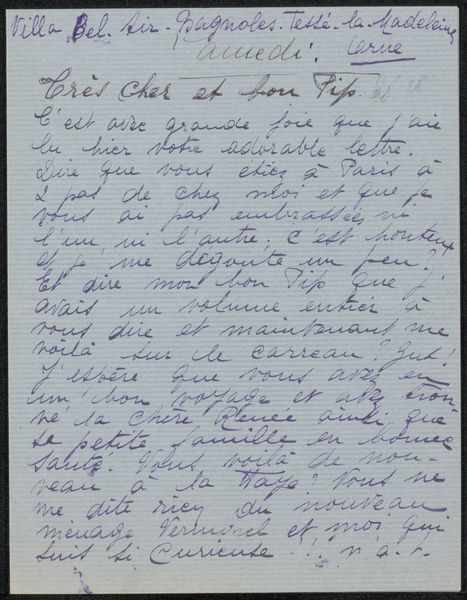 Villa Bel-Air-Bagnoles-Tessé-la-Madeleine
Samedi. Orne
Très cher et bon Pip.
C'est avec grande joie que j'aie
lu hier votre adorable lettre.
Dire que vous étiez à Paris à
2 pas de chez moi et que je
vous ai pas embrassées ni
l'un, ni l'autre. c'est honteux
et je me dégoute un peu?!
Et dire mon bon Pip que j'
avais un volume entier à
vous dire et maintenant me
voilà sur le carreau? Zut!
J'espère que vous avez eu
un bon voyage et avez trou-
vé la chère Renée ainsi que
sa petite famille en bonne
santé. Vous voilà de nou-
veau à la Haye? Vous ne
me dite rien du nouveau
ménage et moi qui
suis si curieuse !!